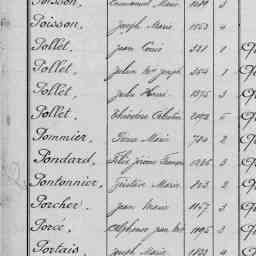 Poisson, Emmanuel Marie 3
Poisson, Joseph Marie 1553 4
Pollet, Jean Louis 321 1
Pollet, Julien Joseph 354 1
Pollet, Jules Henri 1375 3
Pollet, Théodore Célestin 5
Pommier, Pierre Marie 720 2
Pondard, Félix Jérôme 3
Pontonnier, Marie 803 2
Porcher, Jean Marie 1167 3
Porcé, Alphonse Jean 1105 3
Portais, Joseph Marie 4